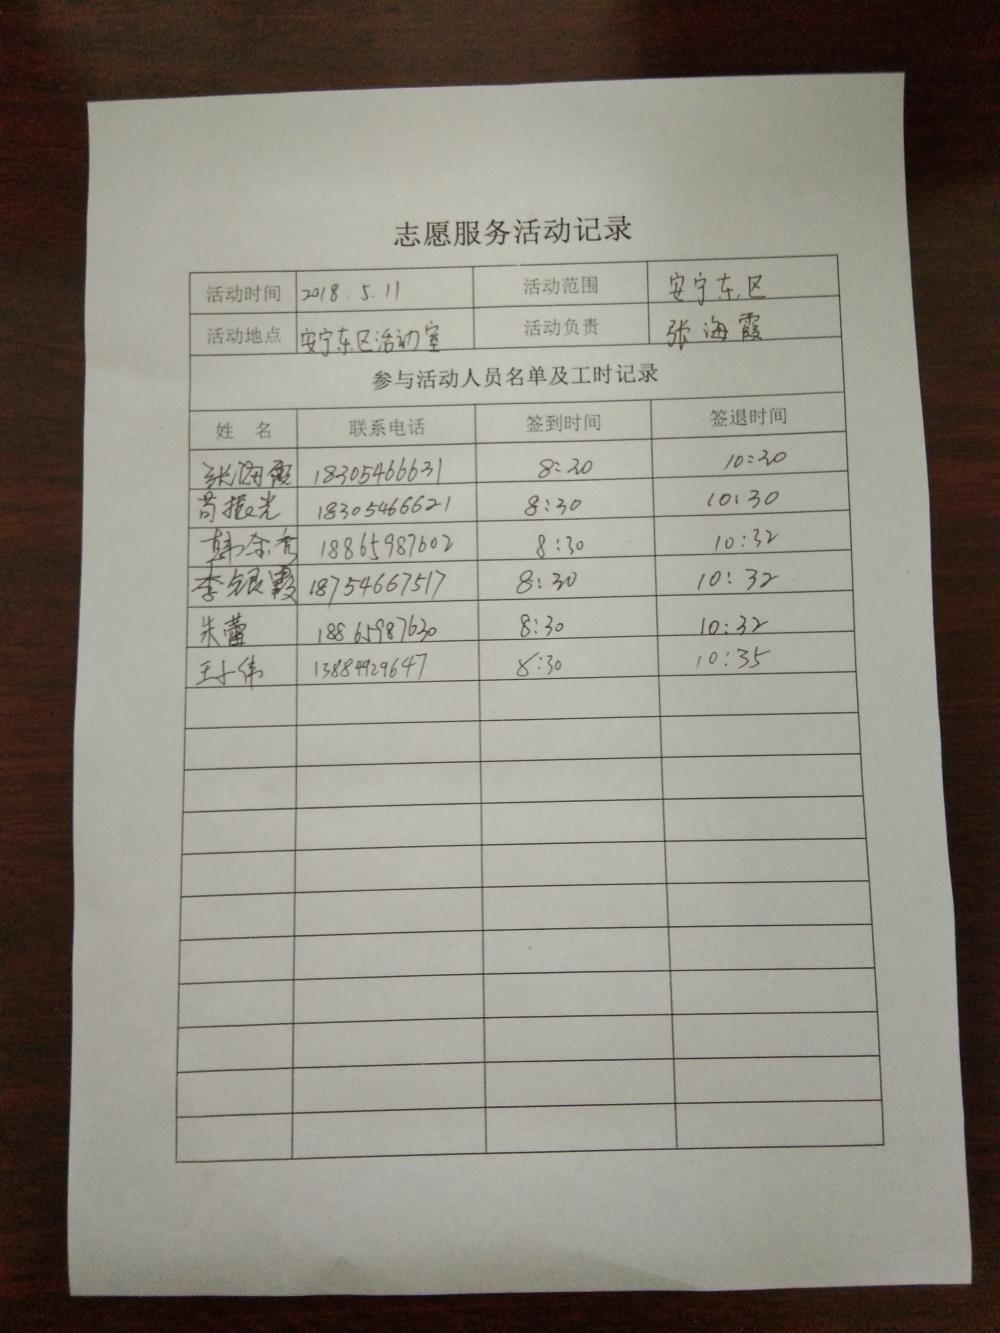 志愿服务活动记录
活动时间 2018.5.11 活动范围 安宁东区
活动地点 安宁东区活动室 活动负责 张海霞
参与活动人员名单及工时记录
姓 名 联系电话 签到时间 签退时间
张海霞 18305466631 8:30 10:30
苟振光 18305466621 8:30 10:30
韩 秀 18865987602 8:30 10:32
李银霞 18754667517 8:30 10:32
朱蕾 18865987630 8:30 10:32
王小伟 13884929647 8:30 10:35